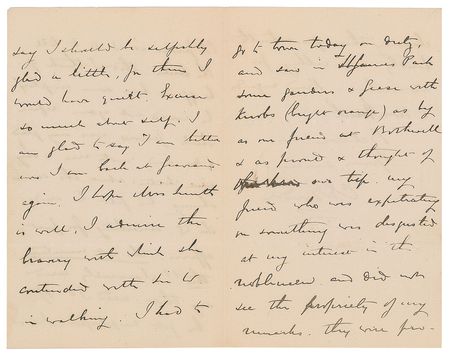 say I should be selfishly
glad a little, for then I
would have quiet. Excuse
so much about self. I
am glad to say I am better
now I am back at
again. I hope Miss Smith
is well. I admire the
bravery with which she
contended with Sir W
in walking. I had to
go to town today on duty,
and saw in St James Park
some ganders & geese with
knobs (bright orange) as big
as our friend at Bothwell
& as proud & thought of
our trip. my
friend who was expatiating
on something was disgusted
at my interest in the
noblemen and did not
see the propriety of my
remarks. they were pro-